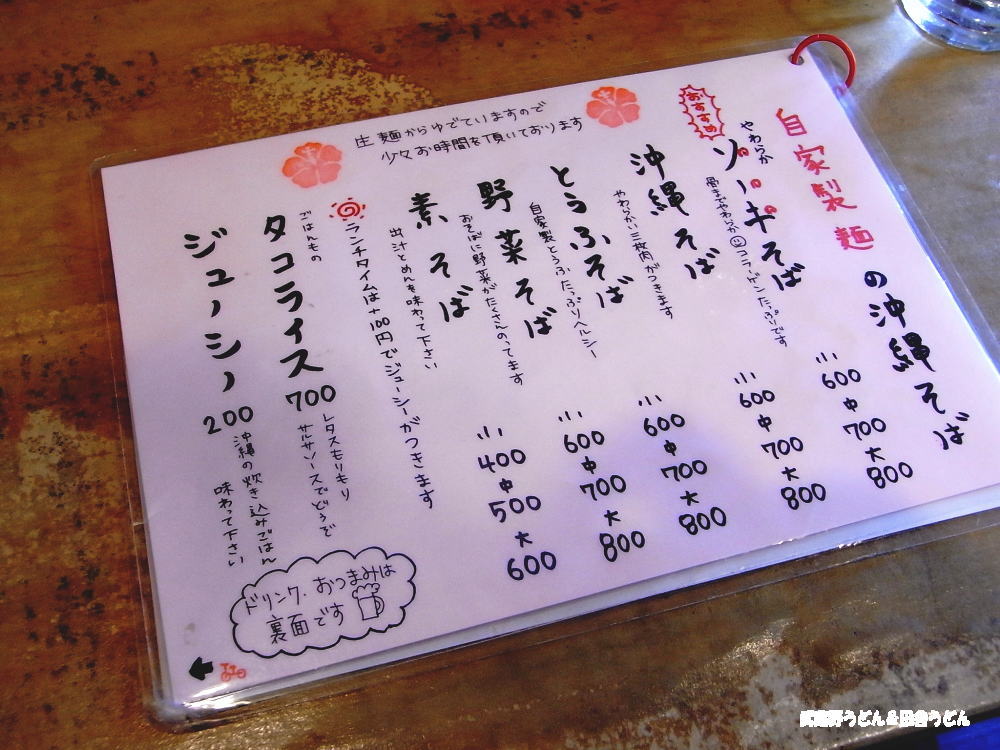 自家製麺の沖縄そば
おすすめ
やわらか
ソーキそば
骨までやわらか コラーゲンたっぷりです
小600 中700 大800
沖縄そば
やわらかい三枚肉がつきます
小600 中700 大800
とうふそば
自家製とうふたっぷりヘルシー
小600 中700 大800
野菜そば
おそばに野菜がたくさんのってます
小600 中700 大800
素そば
出汁とめんを味わって下さい
小400 中500 大600
生麺からゆでていますので
少々お時間を頂いております
ランチタイムは+100円でジューシーがつきます
ごはんもの
タコライス 700
レタスもりもり
サルサソースでどうぞ
ジューシー 200
沖縄の炊き込みごはん
味わって下さい
ドリンク、おつまみは
裏面です
うどん&田舎うどん